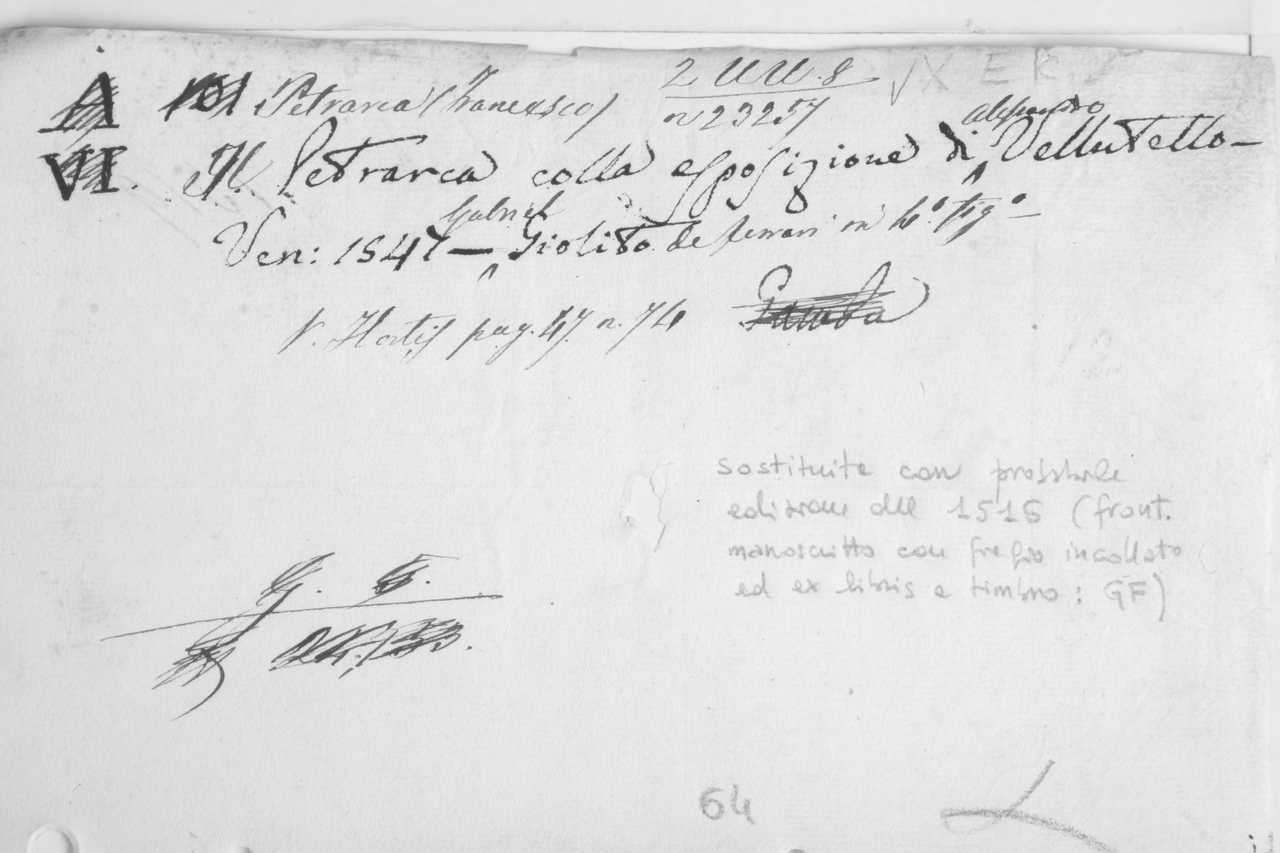 Petrarca (Francesco) 2 UU. 8
n 23257
VI. Il Petrarca colla esposizione di Alessandro Vellutello —
Ven: 1547 — Gabriel Giolito de Ferrari in 4° fig°
V. Hortis pag. 47. n. 74
sostituito con probabile
edizione del 1516 (front.
manoscritto con fregio incollato
ed ex libris e timbro: GF)
G. F.
64